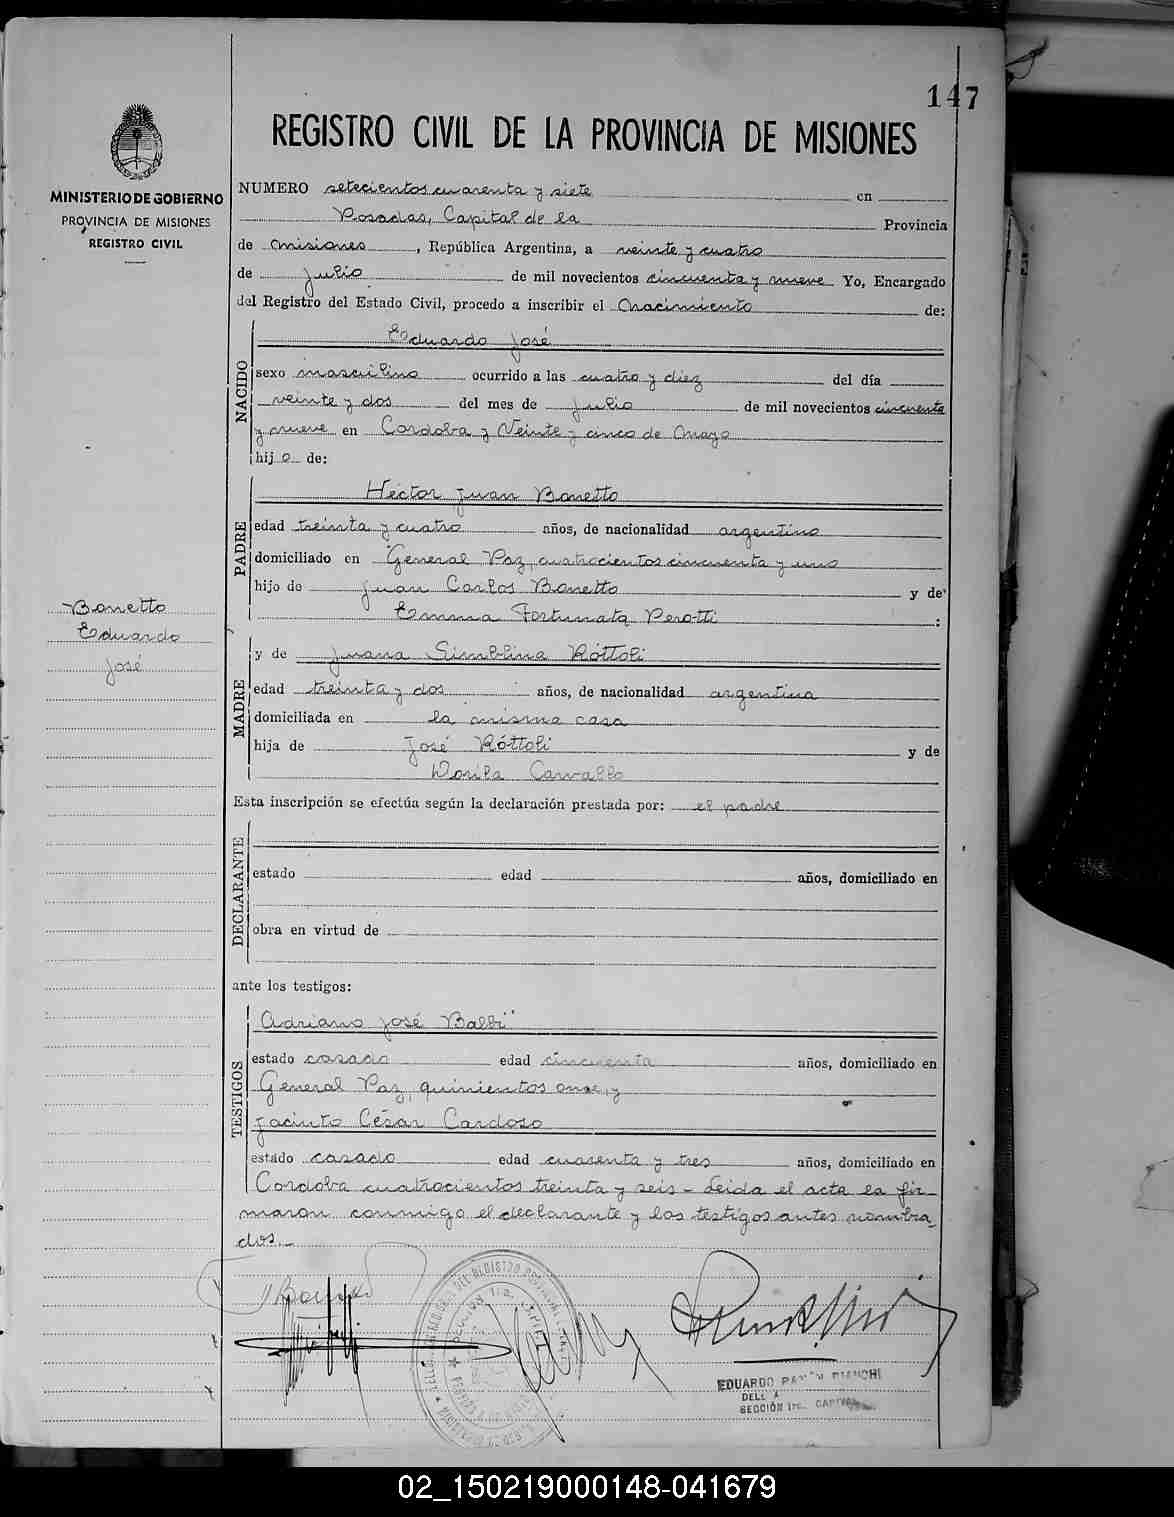 147
REGISTRO CIVIL DE LA PROVINCIA DE MISIONES
MINISTERIO DE GOBIERNO
PROVINCIA DE MISIONES
REGISTRO CIVIL
NUMERO setecientos cuarenta y siete en
Posadas, Capital de la Provincia
de Misiones, República Argentina, a veinte y cuatro
de Julio de mil novecientos cincuenta y nueve Yo, Encargado
del Registro del Estado Civil, procedo a inscribir el Nacimiento de:
NACIDO
Eduardo José
sexo masculino ocurrido a las cuatro y diez del día
veinte y dos del mes de Julio de mil novecientos cincuenta
y nueve en Cordoba y Veinte y cinco de Mayo
hijo de:
PADRE
Héctor Juan Bonetto
edad treinta y cuatro años, de nacionalidad argentino
domiciliado en General Paz, cuatrocientos cincuenta y uno
hijo de Juan Carlos Bonetto y de
Emma Fortunata Perotti :
Bonetto
Eduardo
José
MADRE
y de Juana Róttoli
edad treinta y dos años, de nacionalidad argentina
domiciliada en la misma casa
hija de José Róttoli y de
Dorila Carvallo
Esta inscripción se efectúa según la declaración prestada por: el padre
DECLARANTE
estado edad años, domiciliado en
obra en virtud de
ante los testigos:
TESTIGOS
Adriano José Balbi
estado casado edad cincuenta años, domiciliado en
General Paz, quinientos once, y
Jacinto César Cardoso
estado casado edad cuarenta y tres años, domiciliado en
Cordoba cuatrocientos treinta y seis - Leida el acta la fir-
maron conmigo el declarante y los testigos antes nombra-
dos.-
EDUARDO BIANCHI
SECCIÓN 1ra. CAPITAL
02_150219000148-041679